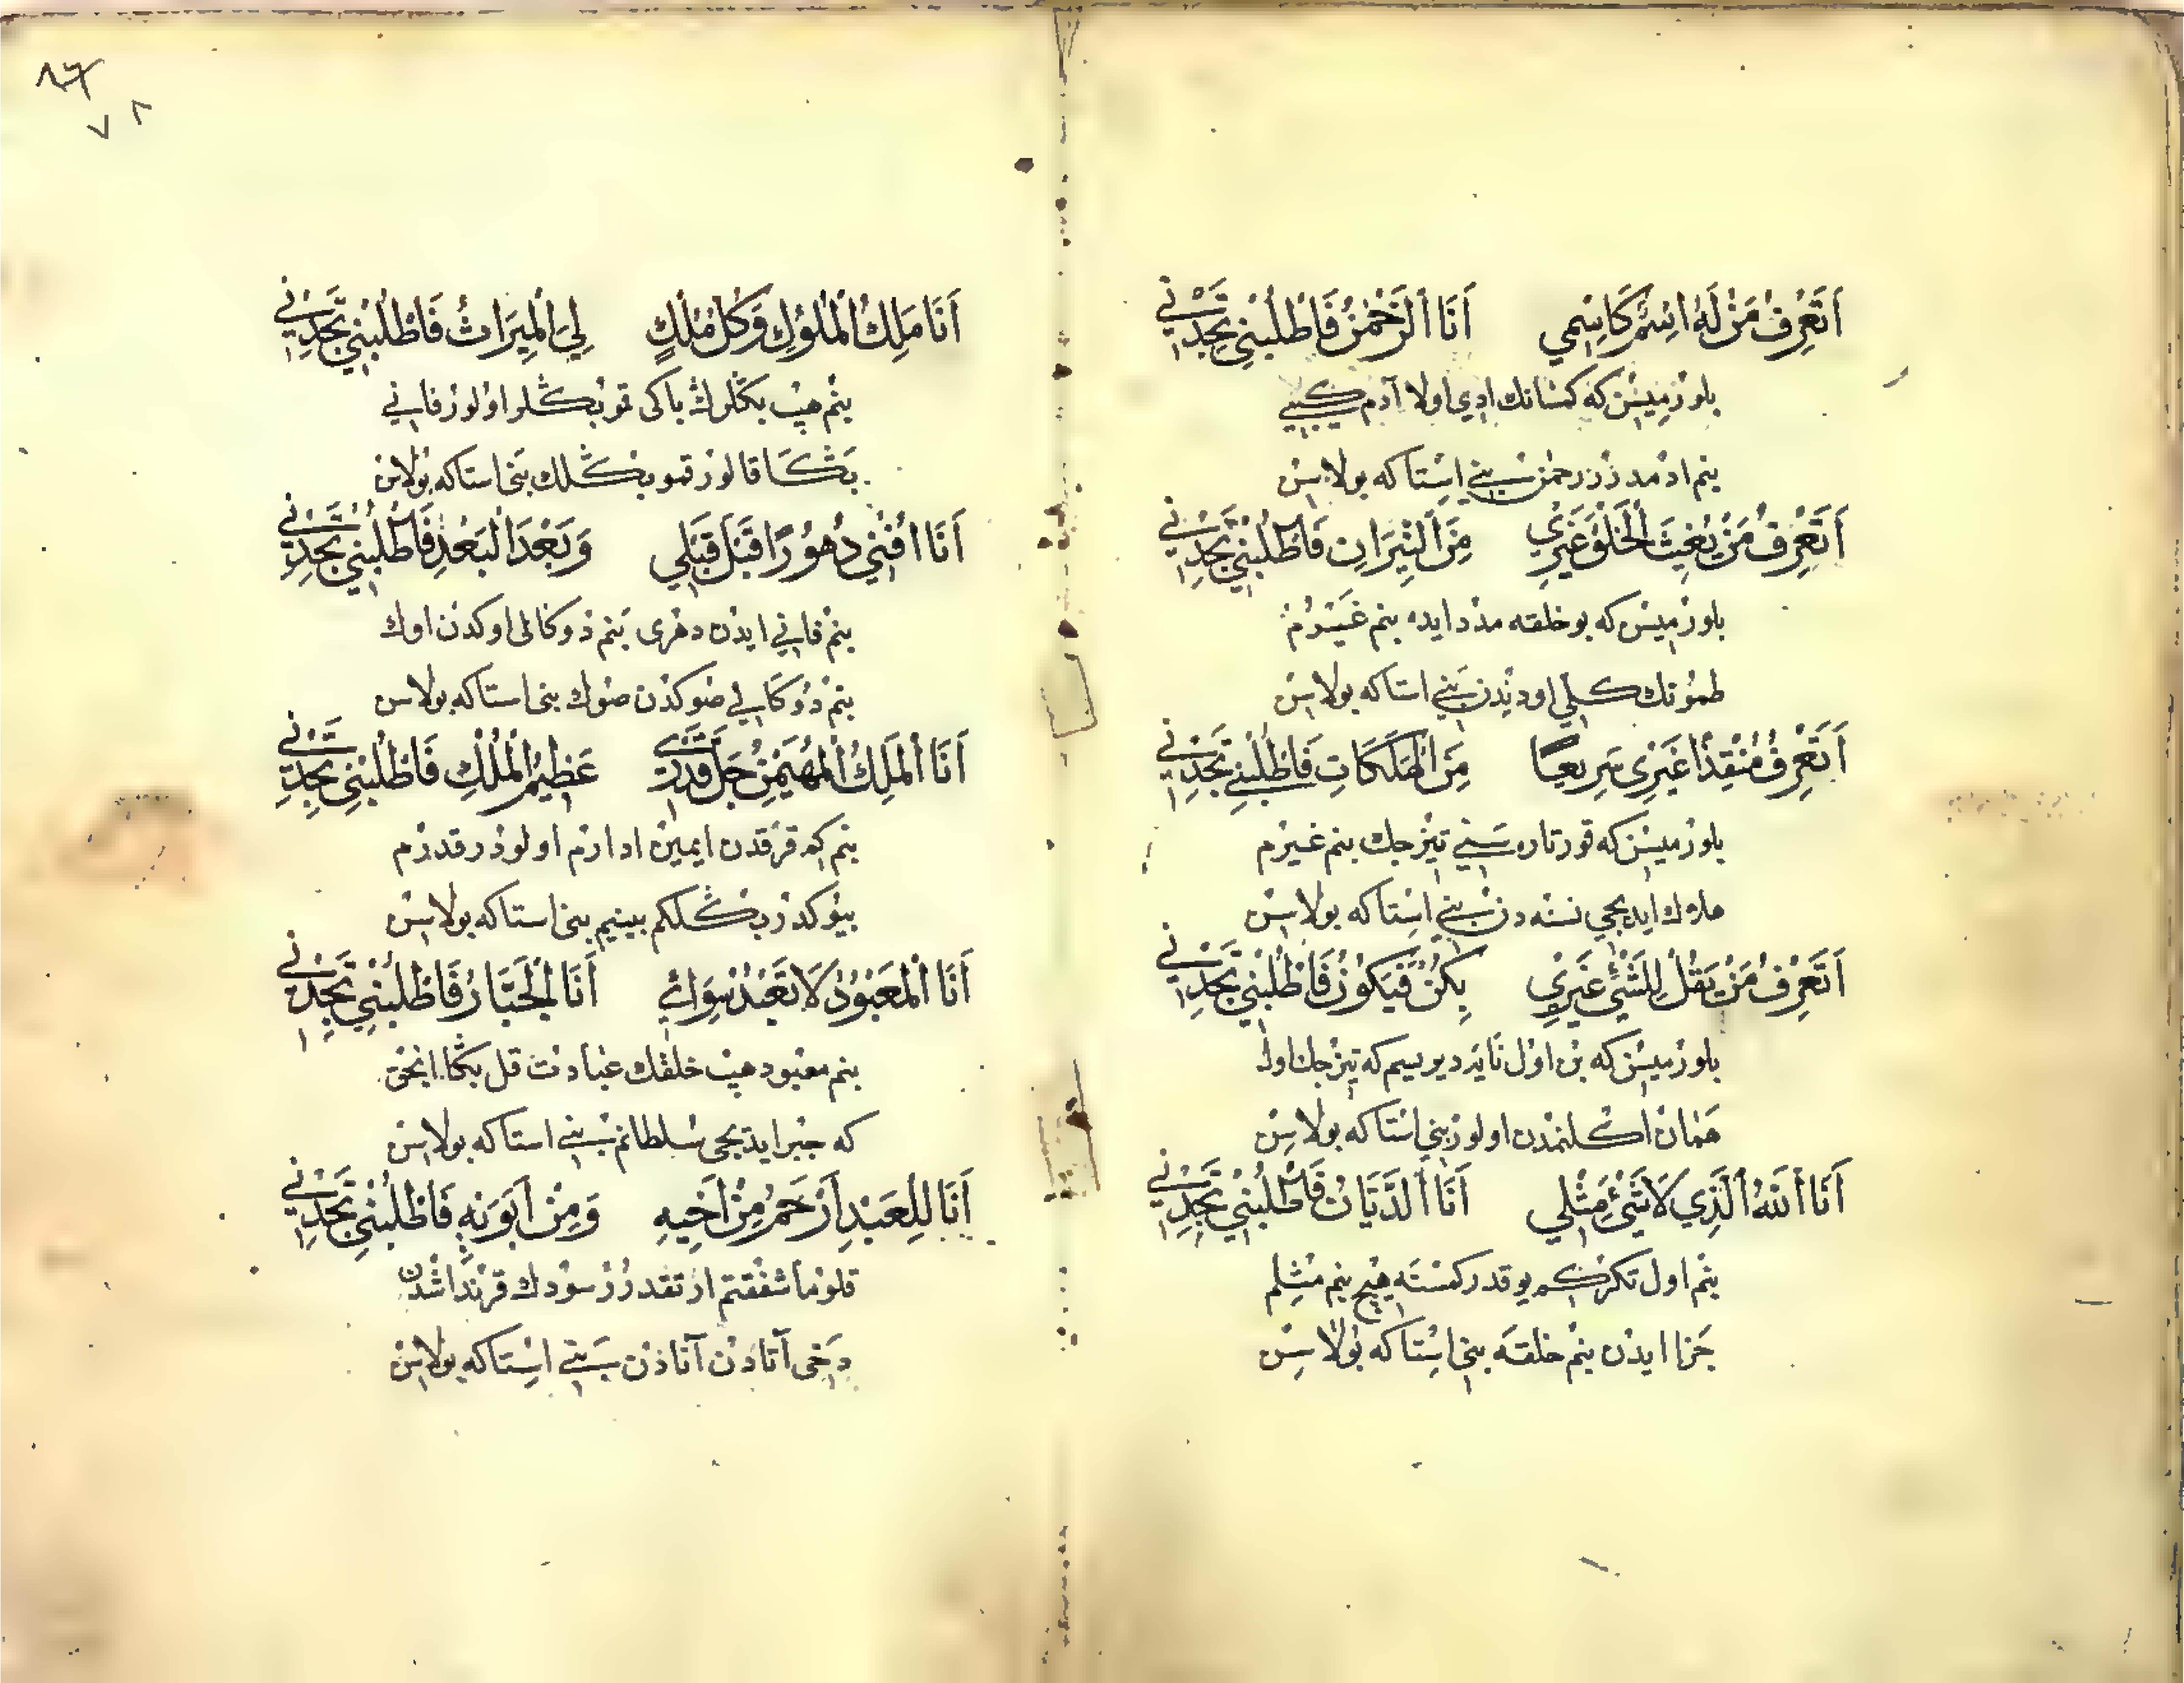 اَتَعْرِفُ مَنْ لَهُ اسْمٌ كَاسْمِي اَنَا الرَّحْمٰنُ فَاطْلُبْنِي تَجِدْنِي
بلورميسن كه كمسانك ادي اولا آدم كيبي
بنم ادمدر رحمن بني استاكه بولاسن
اَتَعْرِفُ مَنْ يُغِيثُ الْخَلْقَ غَيْرِي مِنَ النِّيرَانِ فَاطْلُبْنِي تَجِدْنِي
بلورميسن كه بو خلقه مدد ايده بنم غيرم
طمونك اودندن بني استاكه بولاسن
اَتَعْرِفُ مُنْقِذًا غَيْرِي سَرِيعًا مِنَ الْهَلَكَاتِ فَاطْلُبْنِي تَجِدْنِي
بلورميسن كه قورتاره سني تيزجك بنم غيرم
هلاك ايديجي نسنه دن بني استاكه بولاسن
اَتَعْرِفُ مَنْ يَقُلْ لِلشَّيْءِ غَيْرِي بِكُنْ فَيَكُونُ فَاطْلُبْنِي تَجِدْنِي
بلورميسن كه بن اول تيزجك اول
همان اكلنمدن اولور بني استاكه بولاسن
اَنَا اللّٰهُ الَّذِي لَا شَيْءَ مِثْلِي اَنَا الدَّيَّانُ فَاطْلُبْنِي تَجِدْنِي
بنم اول تكركم يوقدر كمسنه هيچ بنم مثلم
جزا ايدن بنم خلقه بني استاكه بولاسن
٧٨
اَنَا مَلِكُ الْمُلُوكِ وَكُلُّ مُلْكٍ لِيَ الْمِيرَاثُ فَاطْلُبْنِي تَجِدْنِي
بنم هپ بكلرك باكى قمو بكلر اولور فاني
بكا قالور قمو بكلك بني استاكه بولاسن
اَنَا اُفْنِي دُهُورًا قَبْلَ قَبْلِي وَبَعْدَ الْبَعْدِ فَاطْلُبْنِي تَجِدْنِي
بنم فاني ايدن دهرى بنم اوكدن اوك
بنم صوكدن صوك بني استاكه بولاسن
اَنَا الْمَلِكُ الْمُهَيْمِنُ جَلَّ قَدْرِي عَظِيمُ الْمُلْكِ فَاطْلُبْنِي تَجِدْنِي
بنم كه قرقدن ايمين اولودر قدرم
بيوكدر بكلكم بنم بني استاكه بولاسن
اَنَا الْمَعْبُودُ لَا تَعْبُدْ سِوَائِي اَنَا الْجَبَّارُ فَاطْلُبْنِي تَجِدْنِي
بنم معبود هپ خلقك عبادت قل بكا انجق
كه جبر ايديجى سلطانم بني استاكه بولاسن
اَنَا لِلْعَبْدِ اَرْحَمُ مِنْ اَخِيهِ وَمِنْ اَبَوَيْهِ فَاطْلُبْنِي تَجِدْنِي
قلومه شفقتم ارتقدرر سودك قرنداشدن
دخى آتادن آنادن بني استاكه بولاسن